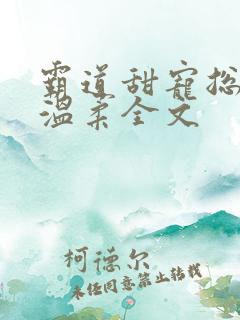 霸道甜寵总
温柔全文
柯德尔
未经同意禁止转载